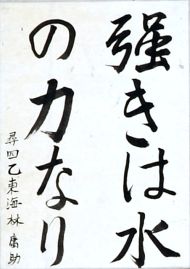 强きは水
の力なり
尋四乙東海林庸助